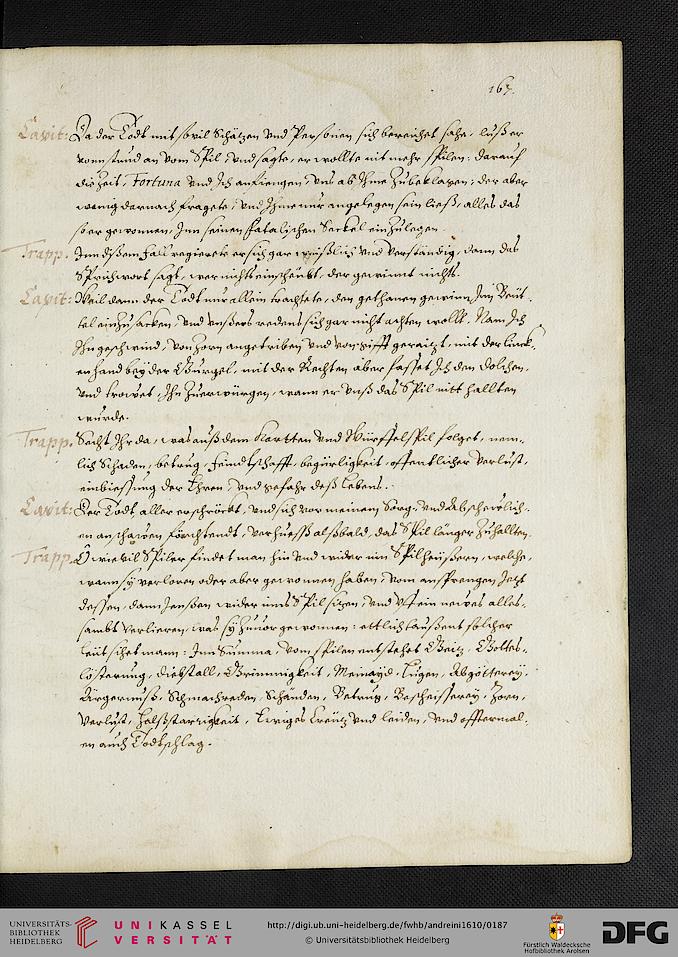 167.
Capit: Da der Todt mit sovil Schätzen und Personen sich bereichet sahe, ließ er
von stund an vom Spil, und sagte, er wollte nit mehr spilen: darauf
die Zeit, Fortuna und Ich anfiengen, uns ab Ihme zubeklagen; der aber
wenig darnach fragete, und Ihme nur angelegen sein ließ, alles das
so er gewonnen, Inn seinen fatalischen Seckel einzulegen.
Trapp. Inn disem fall regierete er sich gar weißlich und verständig, dann das
Sprichwort sagt, wer nichts einschiebt, der gewinnt nichts.
Capit: Weil dann der Todt nur allein trachtete, den gethanen gewinn Inn Beüt-
tel einzusacken, und unsers redens sich gar nicht achten wollt, Nam Ich
Ihn geschwind, von Zorn angetriben und von gifft gereitzt, mit der linck-
en hand bey der Gurgel, mit der Rechten aber fasset Ich den dolchen,
und trowet, Ihn zuerwürgen, wann er unß das Spil nitt hallten
wurde.
Trapp. Secht Ihr da, was auß dem Kartten und Würffelspil folget, nem-
lich Schaden, betrug, feindtschafft, begürligkeit, offentlicher verlust,
einbiessung der Ehren, und gefahr deß lebens.
Capit: Der Todt aller erschröckt, und sich vor meinem Sorg- und Abscheülich-
en anschawen förchtendt, verhiess alßbald, das Spil länger zuhallten.
Trapp. O wie vil Spiler findet man hin und wider inn Spilheüsern, welche,
wann sy verloren oder aber gewonnen haben, vom
dessen, dann Jenssen wider ins Spil sitzen, und uff ein newes alles-
sambt verlieren, was sy zuvor gewonnen: ettlich taußent solcher
leüt sihet mann: Inn Summa, vom spilen entstehet Geitz, Gottes-
lösterung, diebstall, Grimmigkeit, Meinayd, Lugen, Abgötterey,
Ärgernuß, Schmachreden, Schänden, Betrug, Bescheisserey, Zorn,
Verlust, Halßstarrigkeit, Ewiges Creütz und leiden, und offtermal-
en auch Todtschlag.
UNIVERSITÄTS-
BIBLIOTHEK
HEIDELBERG
UNIKASSEL
VERSITÄT
http://digi.ub.uni-heidelberg.de/fwhb/andreini1610/0187
© Universitätsbibliothek Heidelberg
Fürstlich Waldecksche
Hofbibliothek Arolsen
DFG